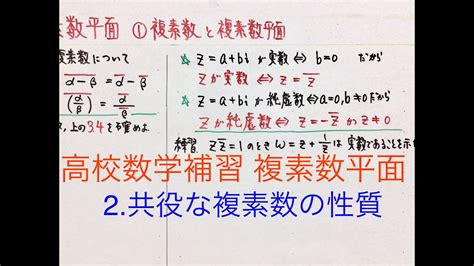 数平面 ①複素数と複素数平面
複素数について
α-β = α-β
(α/β) = α/β
、上の3.4を
☆ z=a+bi が実数 ⇔ b=0 だから
zが実数 ⇔ z=z̄
☆ z=a+bi が純虚数 ⇔ a=0,b≠0 だから
zが純虚数 ⇔ z=-z̄ かつ z≠0
練習 zz̄=1のとき w=z+1/z は実数であることを示
高校数学補習 複素数平面
2.共役な複素数の性質